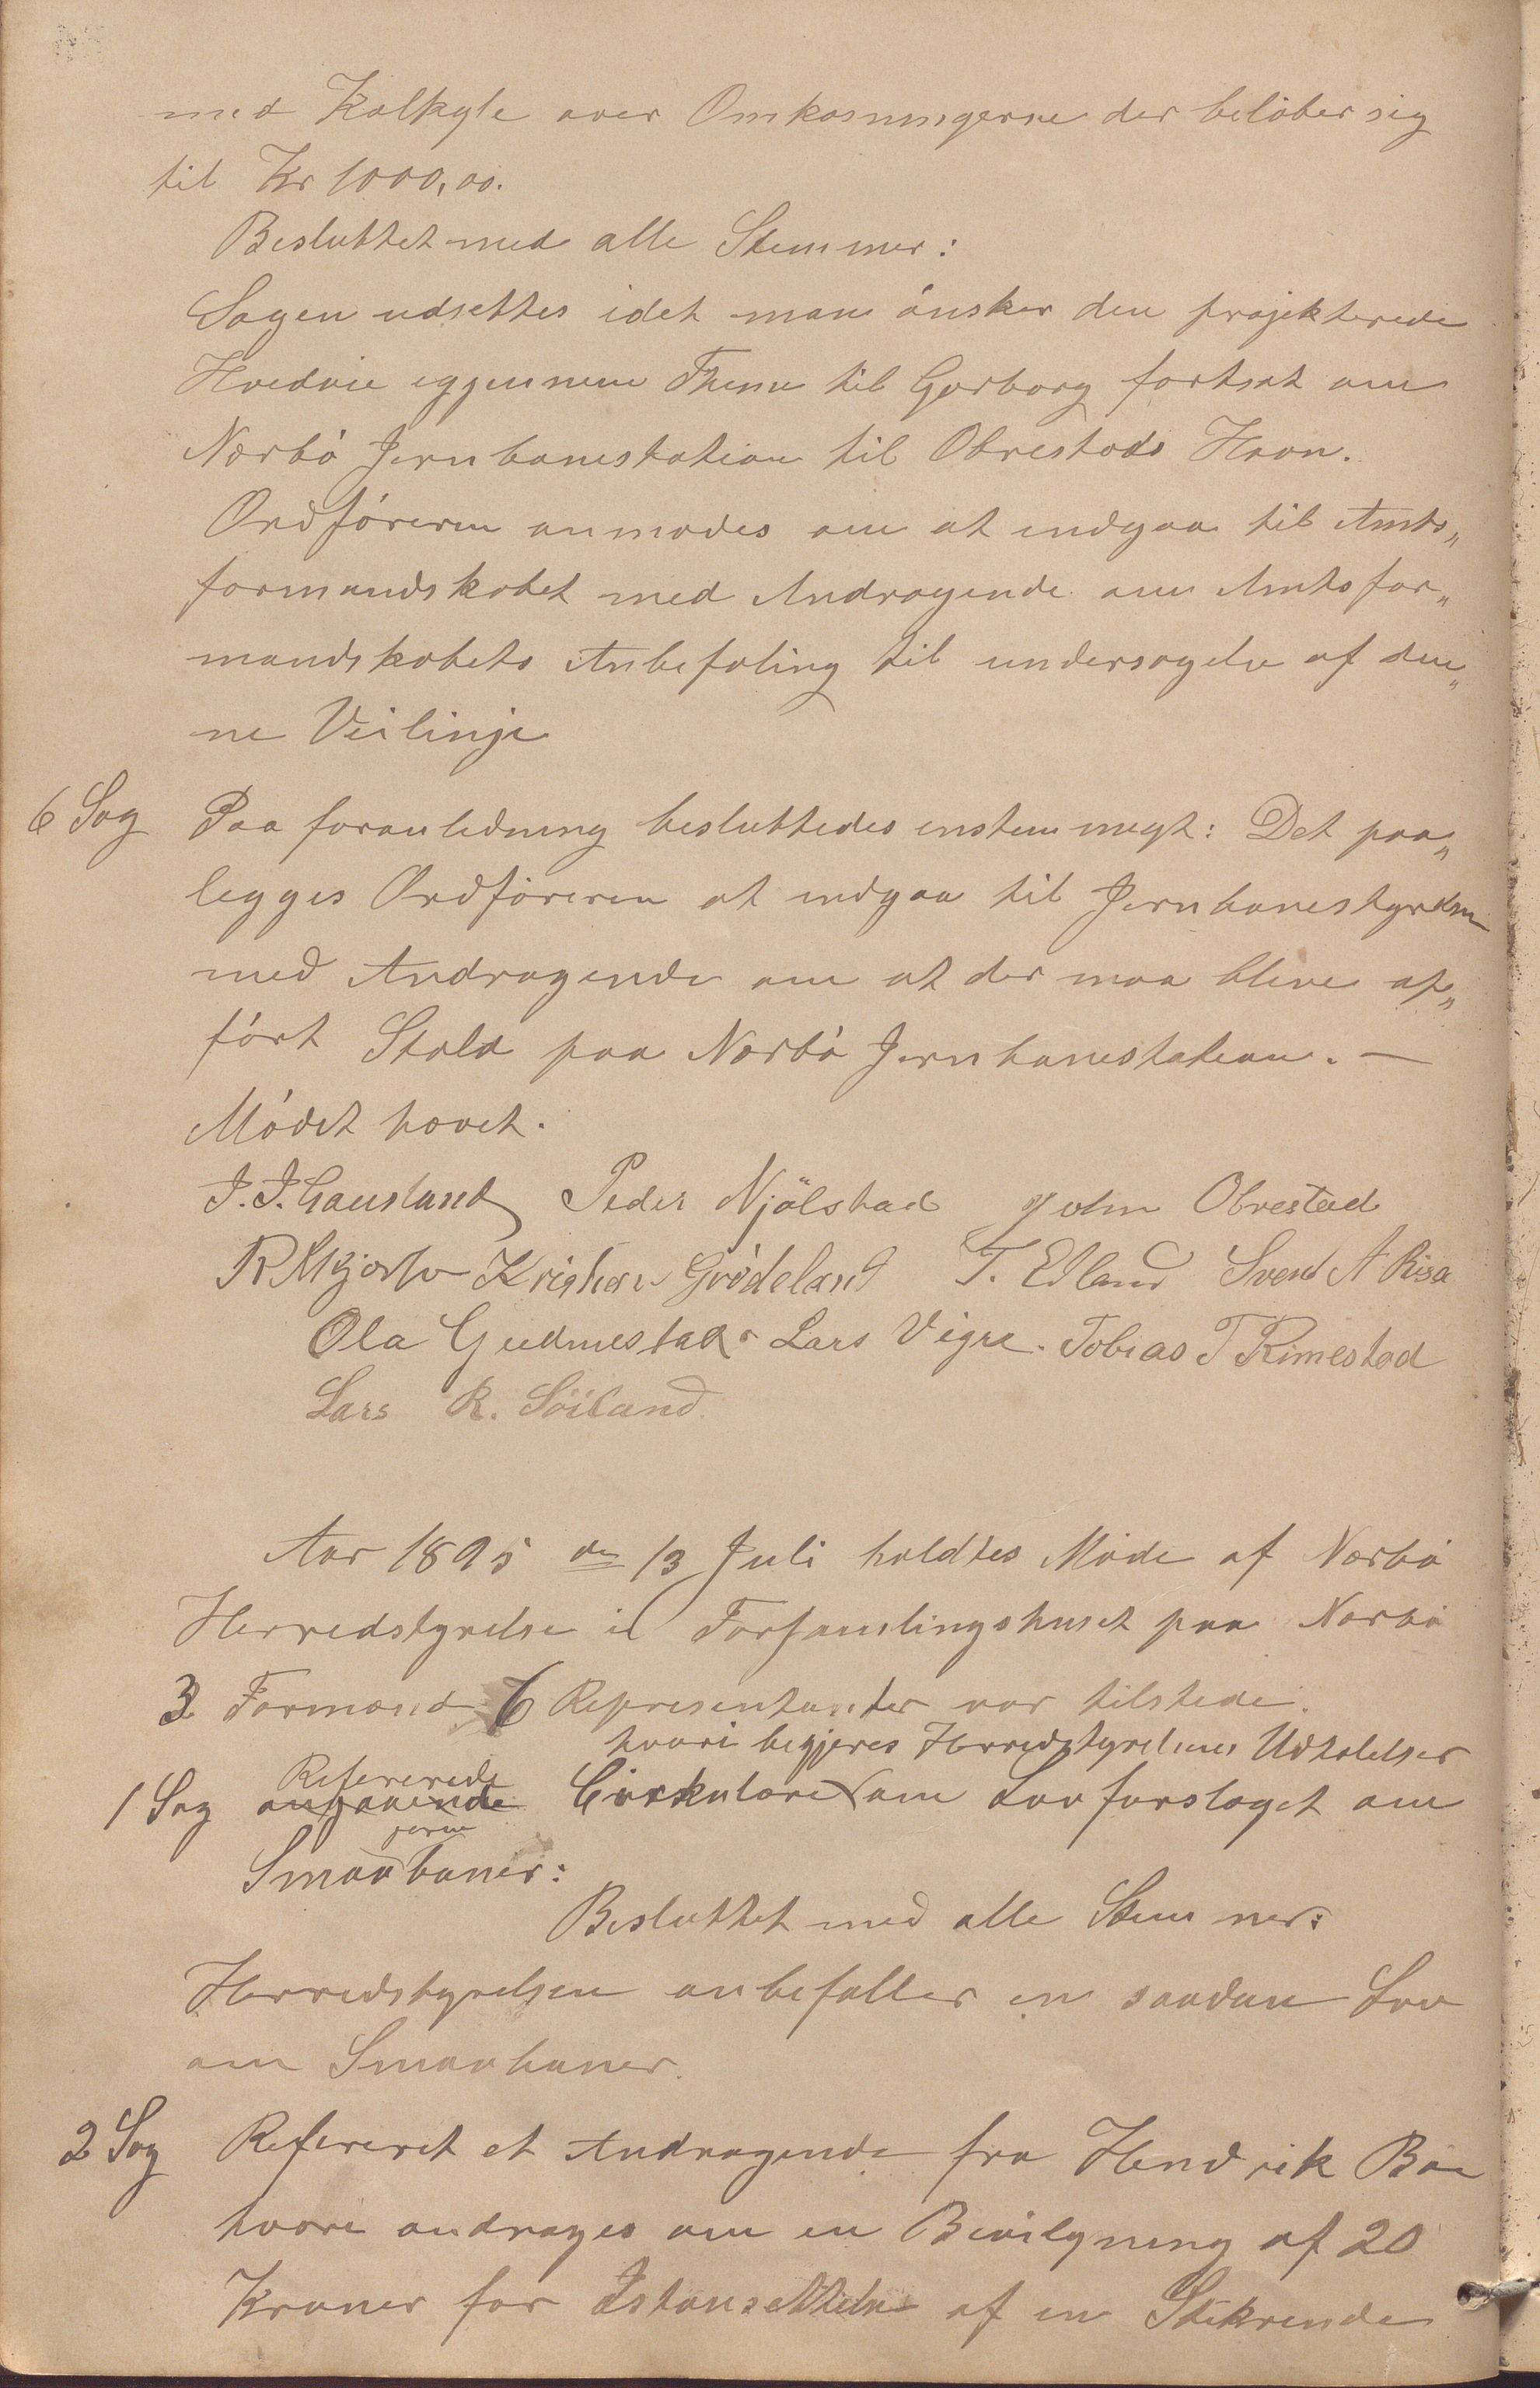 med Kalkyle over Omkosningerne der belöber sig
til Kr 1000,00.
Besluttet med alle Stemmer:
Sagen udsettes idet man önsker den projekterede
Hovedvie egjennem Theme til Garborg fortsat om
Nærbö Jernbanestation til Obrestads Havn.
Ordföreren anmodes om at indgaa til Amts„
formandskabet med Andragende om Amtsfor„
mandskabets Anbefaling til undersogelse af den„
ne Veilinje
6 Sag Paa foranledning besluttedes enstemmigt: Det paa„
legges Ordföreren at indgaa til Jernbanestyrelsen
med Andragende om at der maa blive op„
fört Stald paa Nærbö Jernbanestation. —
Mödet hævet.
J. J. Gausland Peder Njölstad John Obrestad
R Skjærpe Kristian Grödeland T. Edland Svend A Risa
Ola Gudmestad Lars Vigre. Tobias T Rimestad
Lars R. Söiland.
Aar 1895 den 13 Juli holdtes Möde af Nærbö
Herredstyrelse i Forsamlingshuset paa Nærbö
3 Formænd 6 Representanter var tilstede.
hvori begjeres Herredstyrelsens Udtalelser
Refererede
1 Sag angaaende Cirkulære om Lovforslaget om
jern
Smaabaner:
Besluttet med alle Stemmer:
Herredstyrelsen anbefaller en saadan Lov
om Smaabaner.
2 Sag Refereret et Andragende fra Hendrik Bøe
hvori andrages om en Bevilgning af 20
Kroner for Istansettelse af en Stikrende